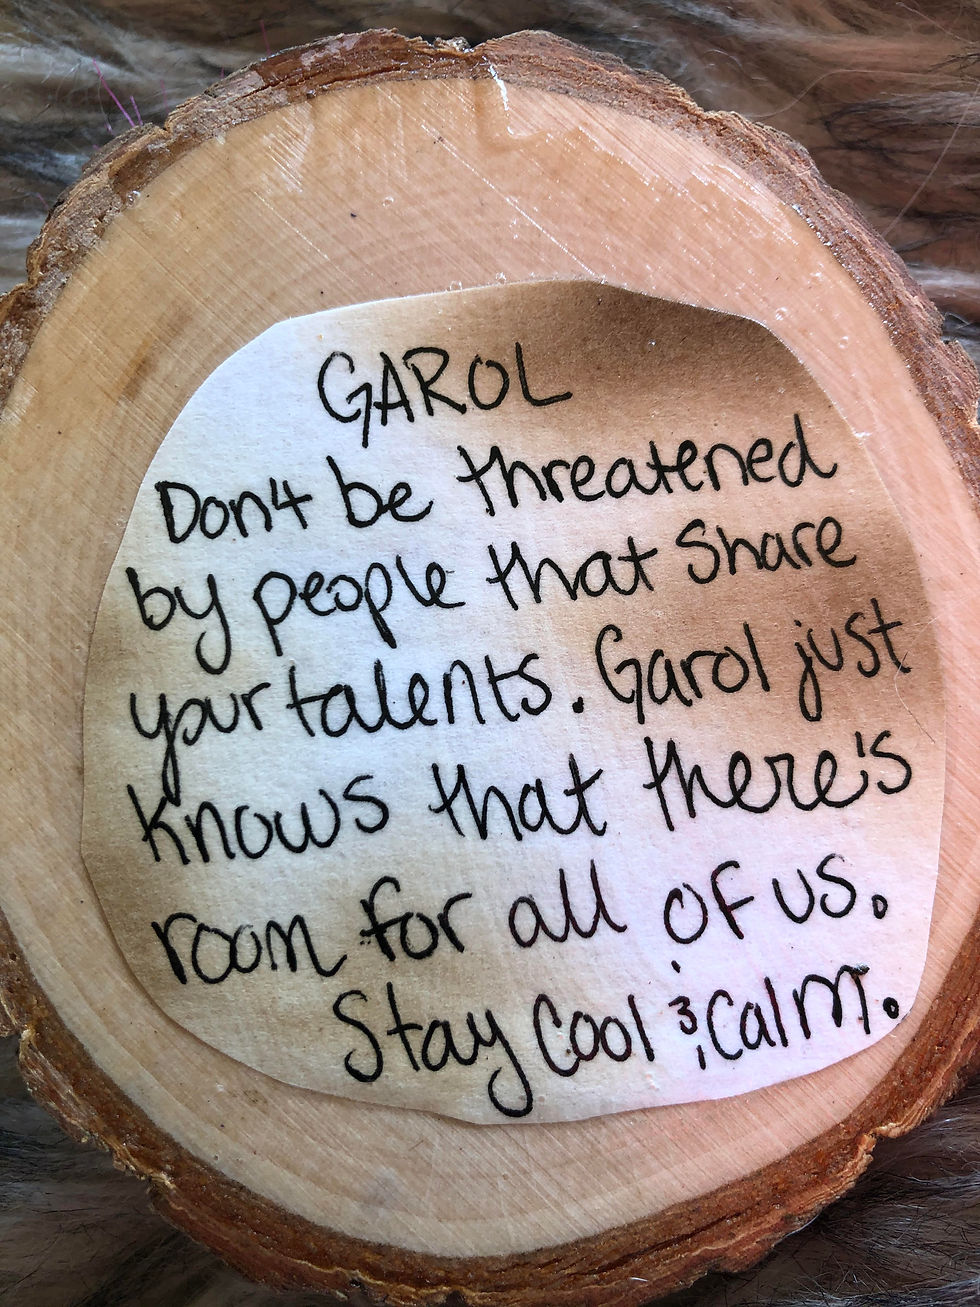 GAROL
Don't be threatened
by people that share
your talents. Garol just
knows that there's
room for all of us.
Stay Cool & Calm.